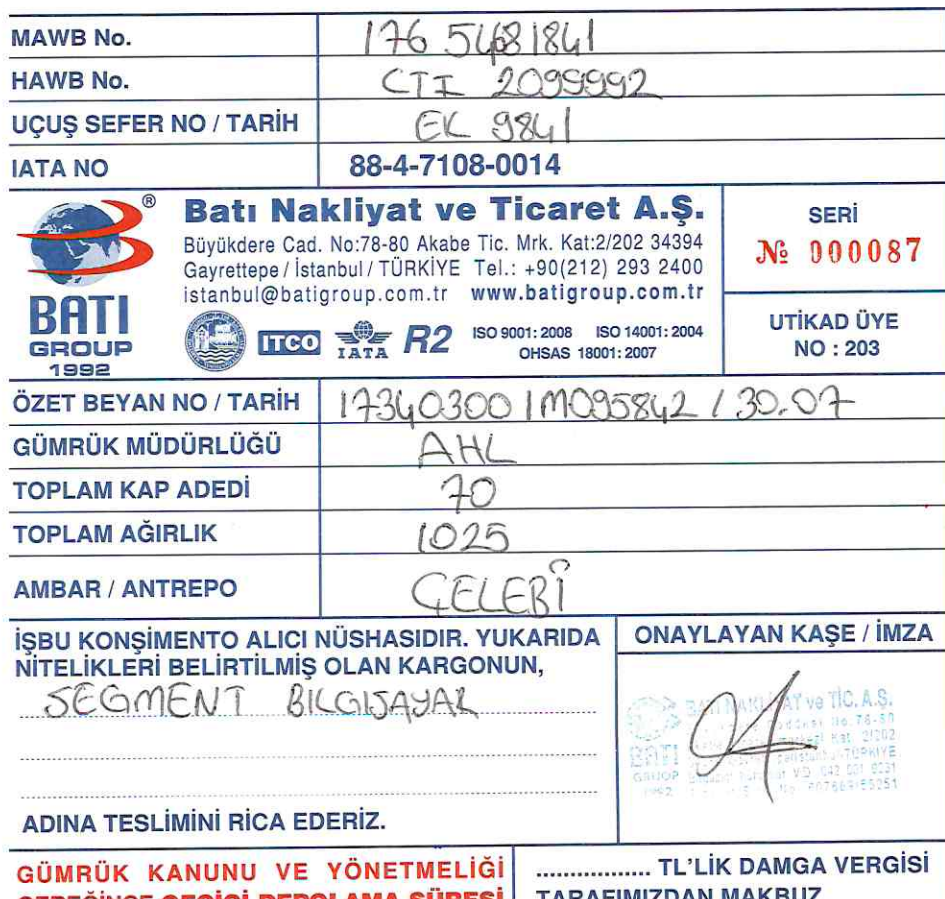 MAWB No. 176 54681841
HAWB No. CTI 2099992
UÇUŞ SEFER NO / TARİH EK 9841
IATA NO 88-4-7108-0014
BATI
GROUP
1992
®
Batı Nakliyat ve Ticaret A.Ş.
Büyükdere Cad. No:78-80 Akabe Tic. Mrk. Kat:2/202 34394
Gayrettepe / İstanbul / TÜRKİYE Tel.: +90(212) 293 2400
istanbul@batigroup.com.tr www.batigroup.com.tr
ITCO IATA R2 ISO 9001: 2008 ISO 14001: 2004
OHSAS 18001: 2007
SERİ
№ 000087
UTİKAD ÜYE
NO : 203
ÖZET BEYAN NO / TARİH 17340300 IM095842 / 30.07
GÜMRÜK MÜDÜRLÜĞÜ AHL
TOPLAM KAP ADEDİ 70
TOPLAM AĞIRLIK 1025
AMBAR / ANTREPO ÇELEBİ
İŞBU KONŞİMENTO ALICI NÜSHASIDIR. YUKARIDA
NİTELİKLERİ BELİRTİLMİŞ OLAN KARGONUN,
SEGMENT BILGISAYAR
ADINA TESLİMİNİ RİCA EDERİZ.
ONAYLAYAN KAŞE / İMZA
BATI NAKLİYAT ve TİC. A.Ş.
BATI
GROUP
1992
GÜMRÜK KANUNU VE YÖNETMELİĞİ
GEREĞİNCE GEÇİCİ DEPOLAMA SÜRESİ
................. TL'LİK DAMGA VERGİSİ
TARAFIMIZDAN MAKBUZ